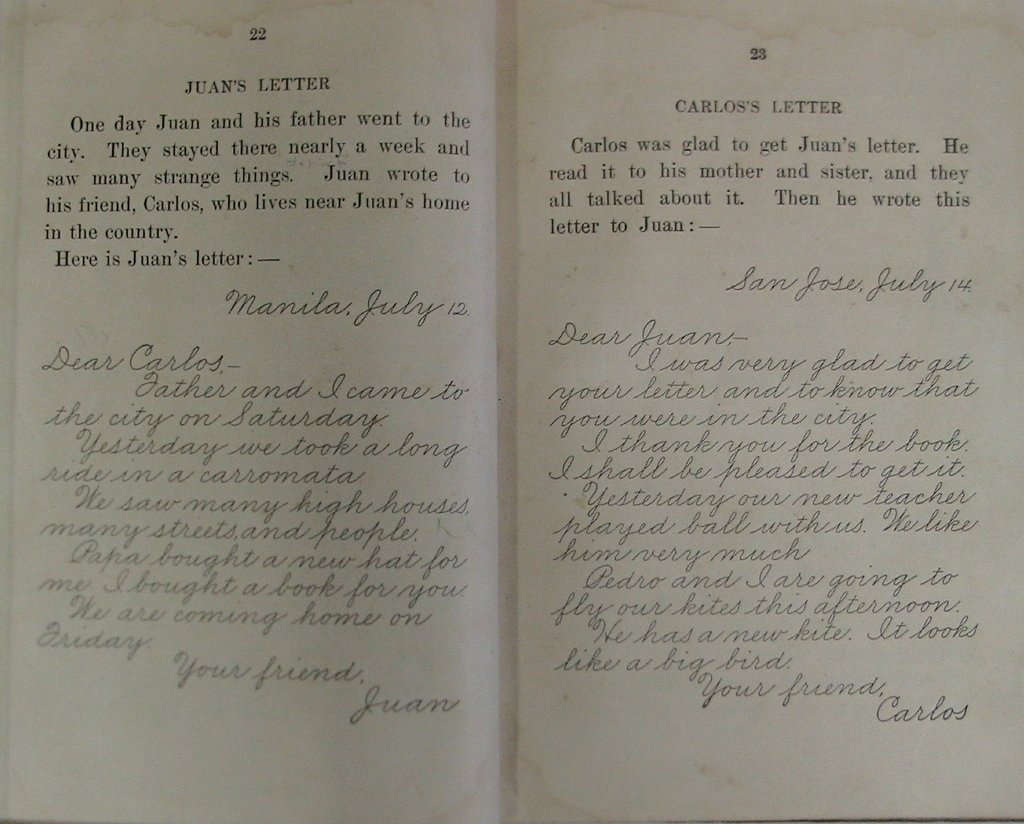 22
JUAN'S LETTER
One day Juan and his father went to the
city. They stayed there nearly a week and
saw many strange things. Juan wrote to
his friend, Carlos, who lives near Juan's home
in the country.
Here is Juan's letter: —
Manila, July 12.
Dear Carlos,—
Father and I came to
the city on Saturday.
Yesterday we took a long
ride in a carromata
We saw many high houses,
many streets, and people.
Papa bought a new hat for
me. I bought a book for you.
We are coming home on
Friday.
Your friend,
Juan
23
CARLOS'S LETTER
Carlos was glad to get Juan's letter. He
read it to his mother and sister, and they
all talked about it. Then he wrote this
letter to Juan: —
San Jose, July 14.
Dear Juan,—
I was very glad to get
your letter and to know that
you were in the city.
I thank you for the book.
I shall be pleased to get it.
Yesterday our new teacher
played ball with us. We like
him very much
Pedro and I are going to
fly our kites this afternoon.
He has a new kite. It looks
like a big bird.
Your friend,
Carlos